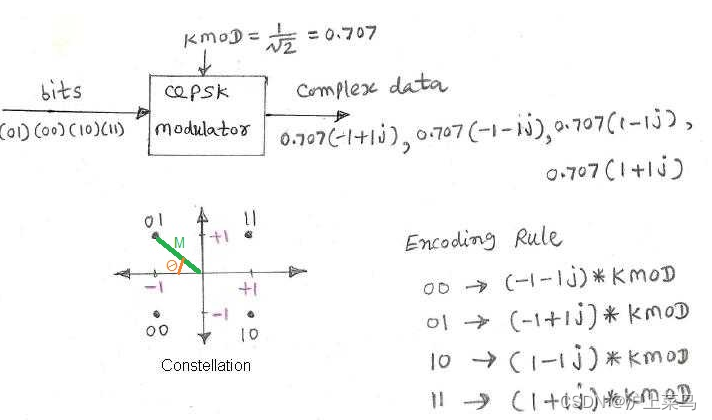 KMOD = 1/√2 = 0.707
bits
CQPSK
modulator
Complex data
(01)(00)(10)(11)
0.707(-1+1j), 0.707(-1-1j), 0.707(1-1j),
0.707(1+1j)
01
11
M
+1
Θ
-1
+1
-1
00
10
Constellation
Encoding Rule
00 → (-1-1j)*KMOD
01 → (-1+1j)*KMOD
10 → (1-1j)*KMOD
11 → (1+1j)*KMOD